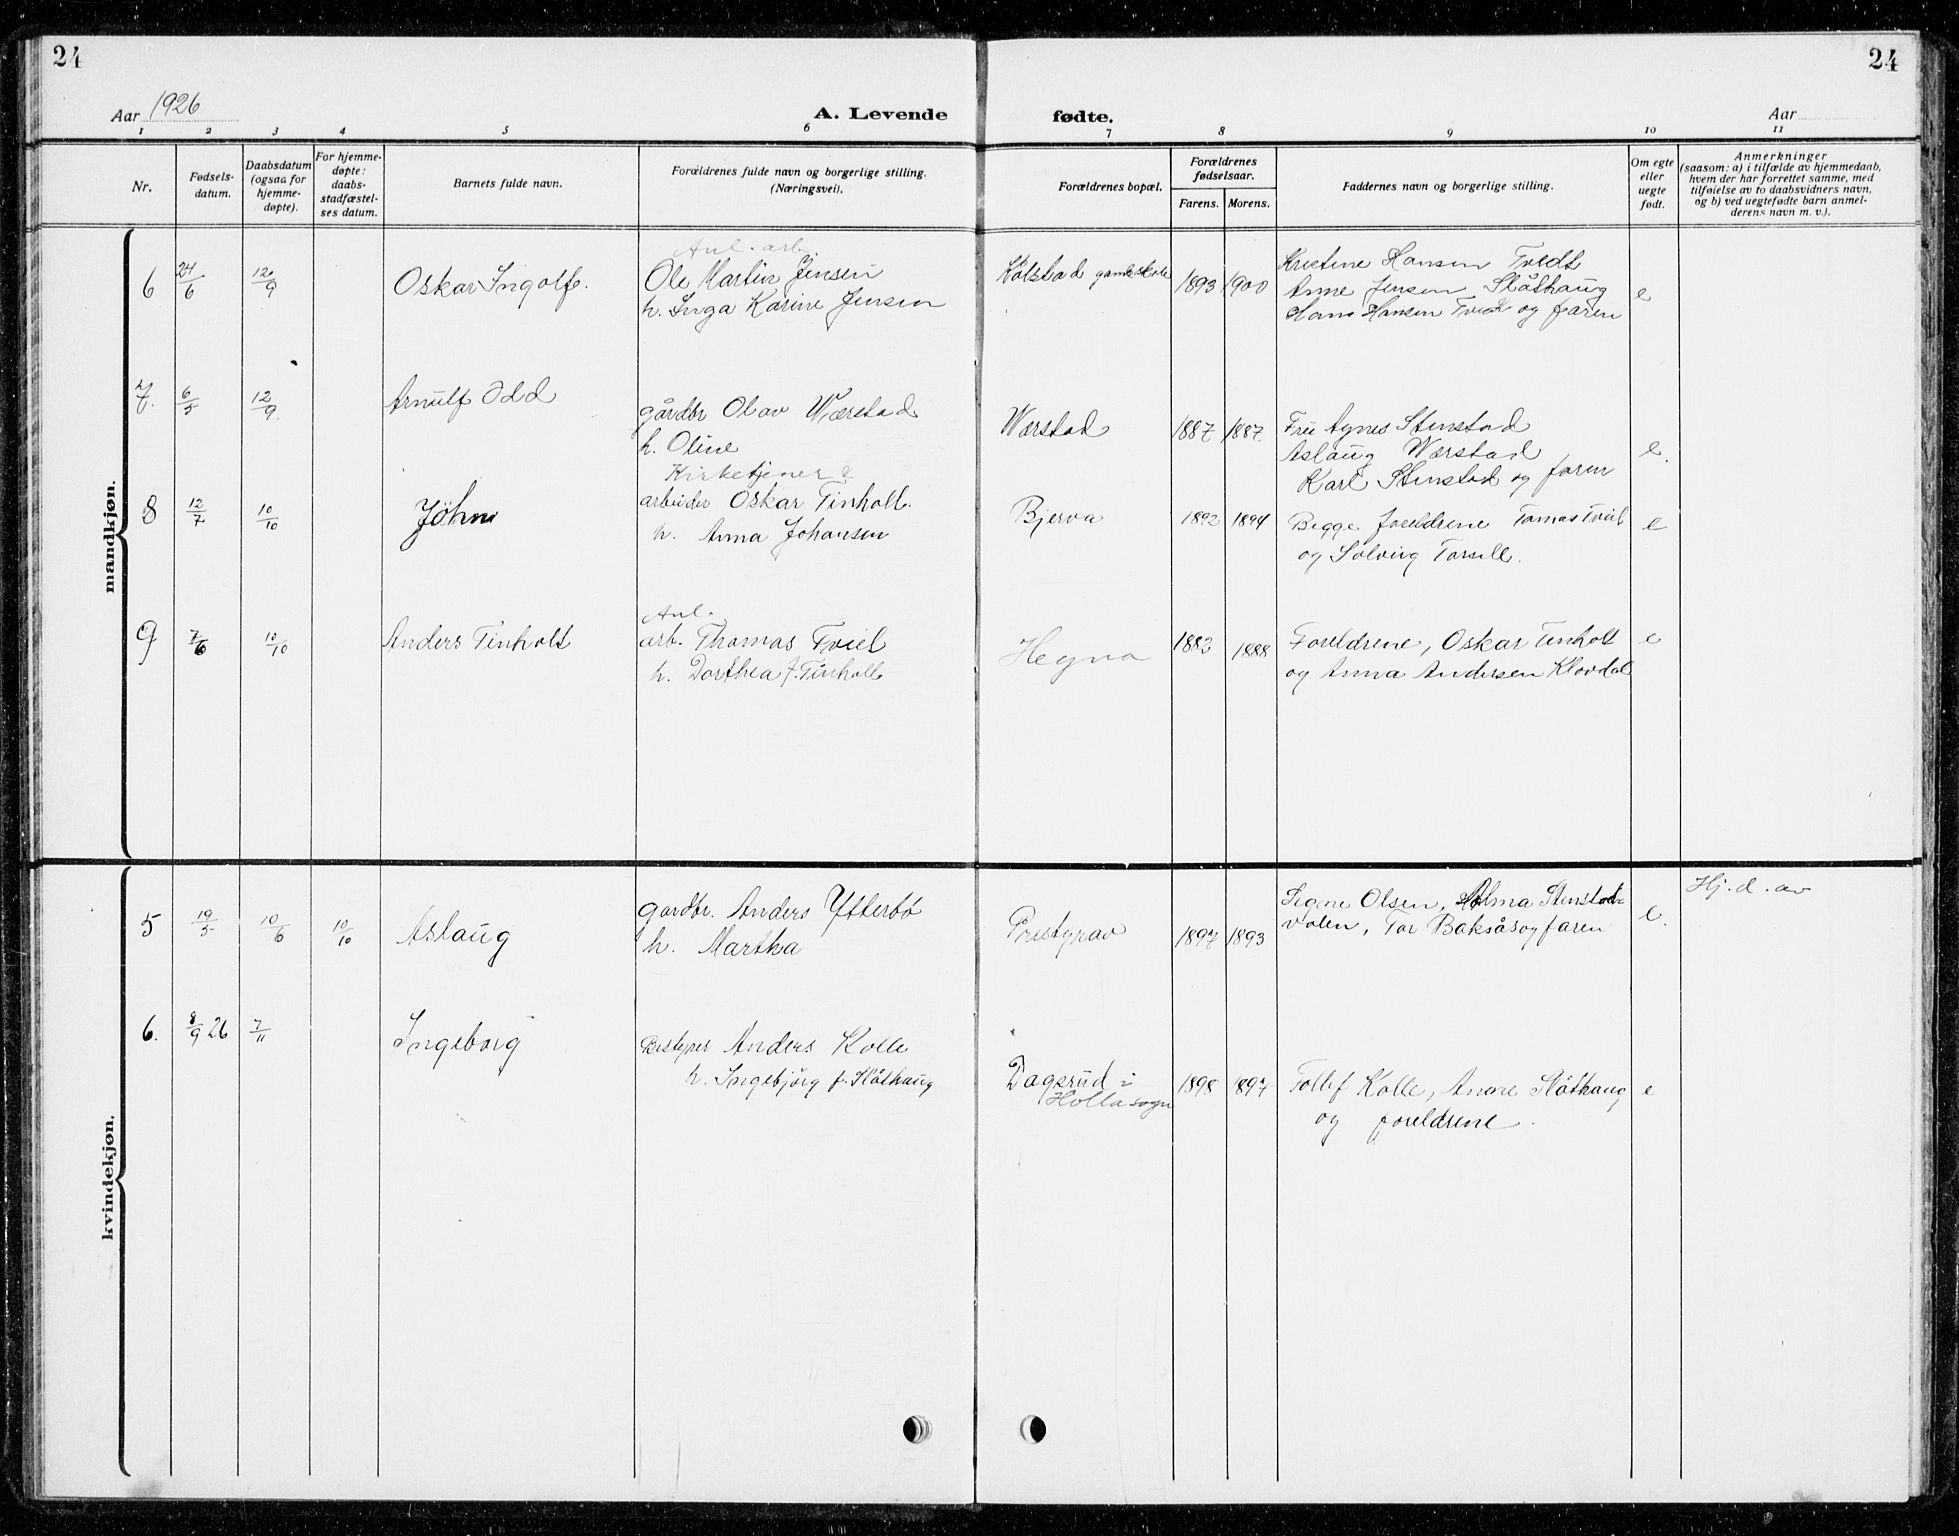 24
24
Aar 1926
A. Levende fødte.
Aar
1 2 3 4 5 6 7 8 9 10 11
Nr.
Fødsels-
datum.
Daabsdatum
(ogsaa for
hjemme-
døpte).
For hjemme-
døpte:
daabs-
stadfæstel-
ses datum.
Barnets fulde navn.
Forældrenes fulde navn og borgerlige stilling.
(Næringsvei).
Forældrenes bopæl.
Forældrenes
fødselsaar.
Farens. Morens.
Faddernes navn og borgerlige stilling.
Om egte
eller
uegte
født.
Anmerkninger
(saasom: a) i tilfælde av hjemmedaab,
hvem der har forrettet samme, med
tilføielse av to daabsvidners navn,
og b) ved uegtefødte barn anmel-
derens navn m. v.).
mandkjøn.
6 24/6 12/9 Oskar Ingolf.
Anl. arb.
Ole Martin Jensen
h. Inga Karine Jensen
Kolstad gamleskole 1893 1900
Kristine Hansen Tvedt
Anne Jensen Slåthaug
Hans Hansen Tvedt og faren
e
7. 6/5 12/9. Arnulf Odd
gårdbr Olav Værstad
h. Oline
Værstad 1887 1887.
Fru Agnes Stenstad
Aslaug Værstad
Karl Stenstad og faren
e.
8 12/7 10/10 John
Kirketjener &
arbeider Oskar Tinholt.
h. Anna Johansen
Bjerva 1892 1894
Begge foreldrene Tomas Tviet
og Solveig
e
9 7/6 10/10 Anders Tinholt
Anl.
arb. Thomas Tviet
h. Dorthea f. Tinholt
Hegna 1882 1888
Foreldrene, Oskar Tinholt
og Anna Andersen Klovdal
e
kvindekjøn.
5 19/5 10/6 10/10 Aslaug
gardbr. Anders Ytterbö
h. Martha
Prestgrav 1897 1893
Signe Olsen, Alma Stenstad-
valen, Tor Baksås og faren
e.
Hj. d. av
6. 8/9 26 7/11 Ingeborg
Bestyrer Anders Kolle
h. Ingebjörg f. Slåthaug
Dagsrud i
Holla sogn
1898 1897
Tollef Kolle, Anne Slåthaug
og foreldrene.
e